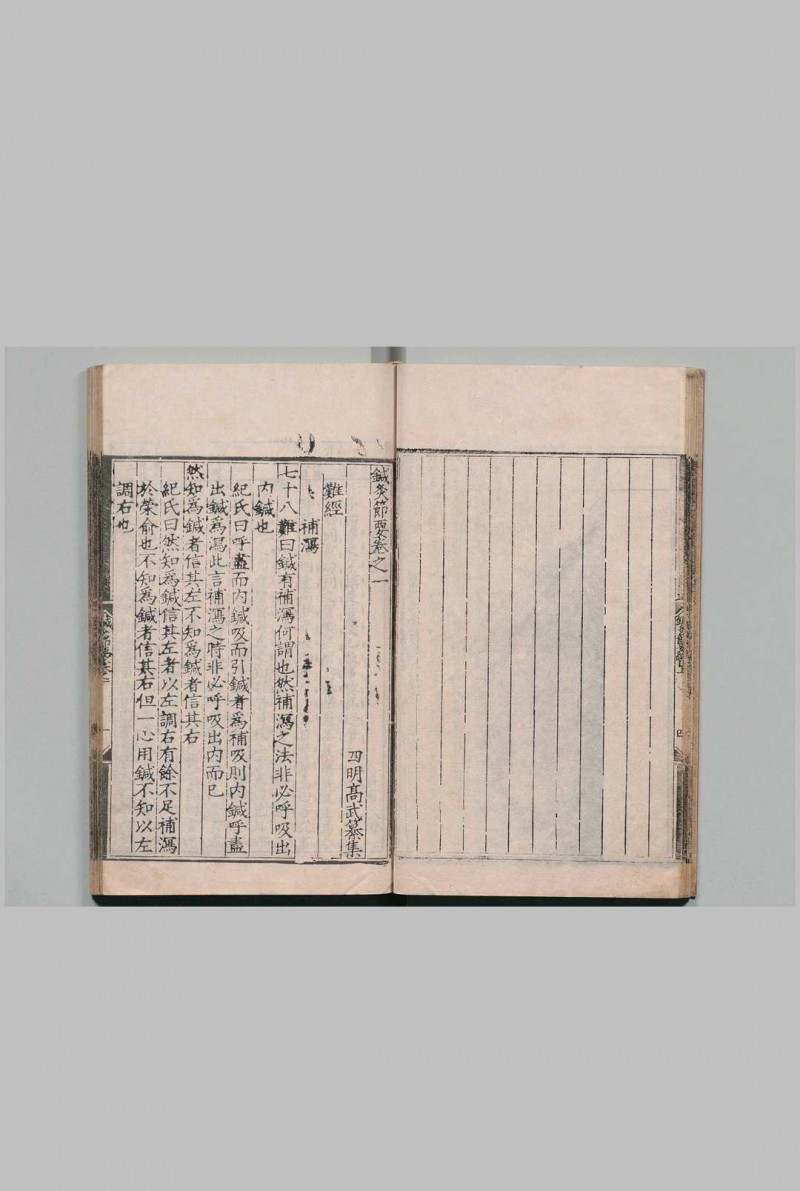 鍼灸節要卷之一
四明高武纂集
難經
補瀉
七十八難曰鍼有補瀉何謂也然補瀉之法非必呼吸出
內鍼也
紀氏曰呼盡而內鍼吸而引鍼者爲補吸則內鍼呼盡
出鍼爲瀉此言補瀉之時非必呼吸出內而已
然知爲鍼者信其左不知爲鍼者信其右
紀氏曰然知爲鍼信其左者以左調右有餘不足補瀉
於榮俞也不知爲鍼者信其右但一心用鍼不知以左
調右也